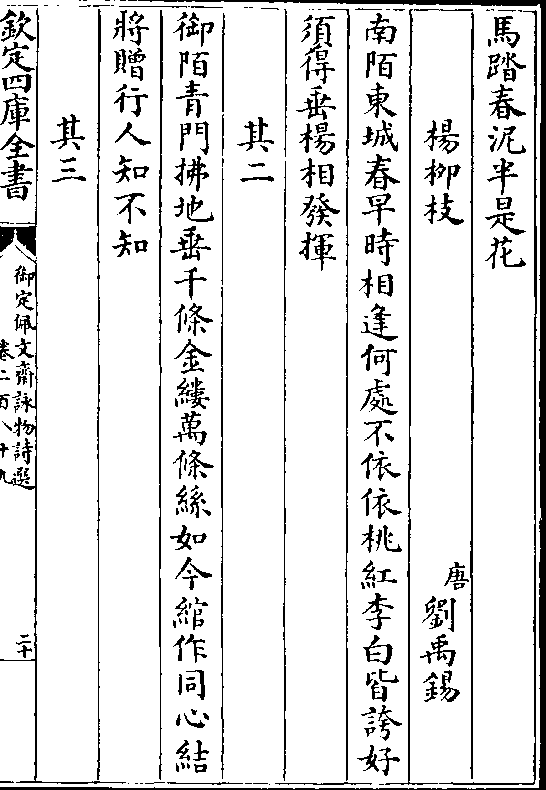 馬踏春泥半是花
楊柳枝
唐劉禹錫
南陌東城春早時相逢何處不依依桃紅李白皆誇好
須得垂楊相發揮
其二
御陌青門拂地垂千條金縷萬條絲如今綰作同心結
將贈行人知不知
其三
欽定四庫全書
御定佩文齋詠物詩選
卷二百八十九
二十